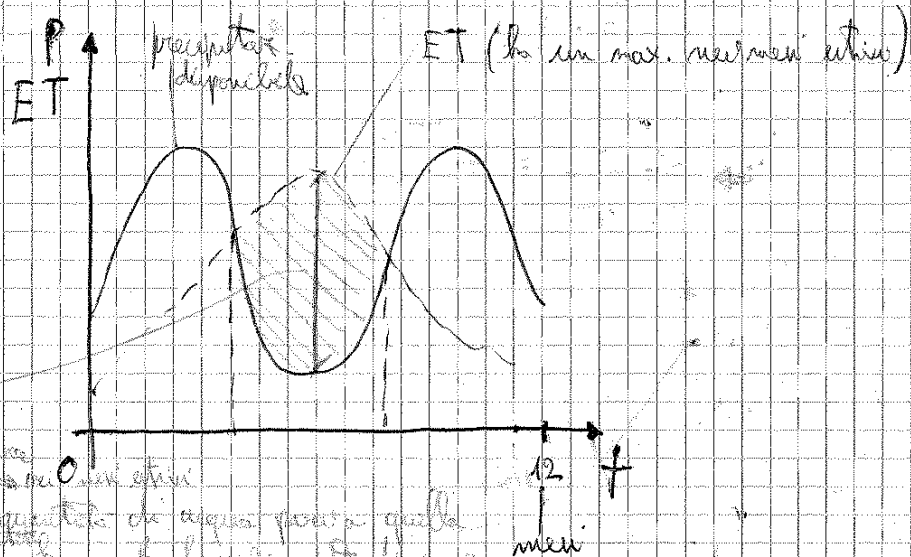 P
ET
precipitaz.
disponibile
ET (ha un max. nei mesi estivi)
O
12
t
mesi
nei mesi estivi
quantità di acqua pari a quella